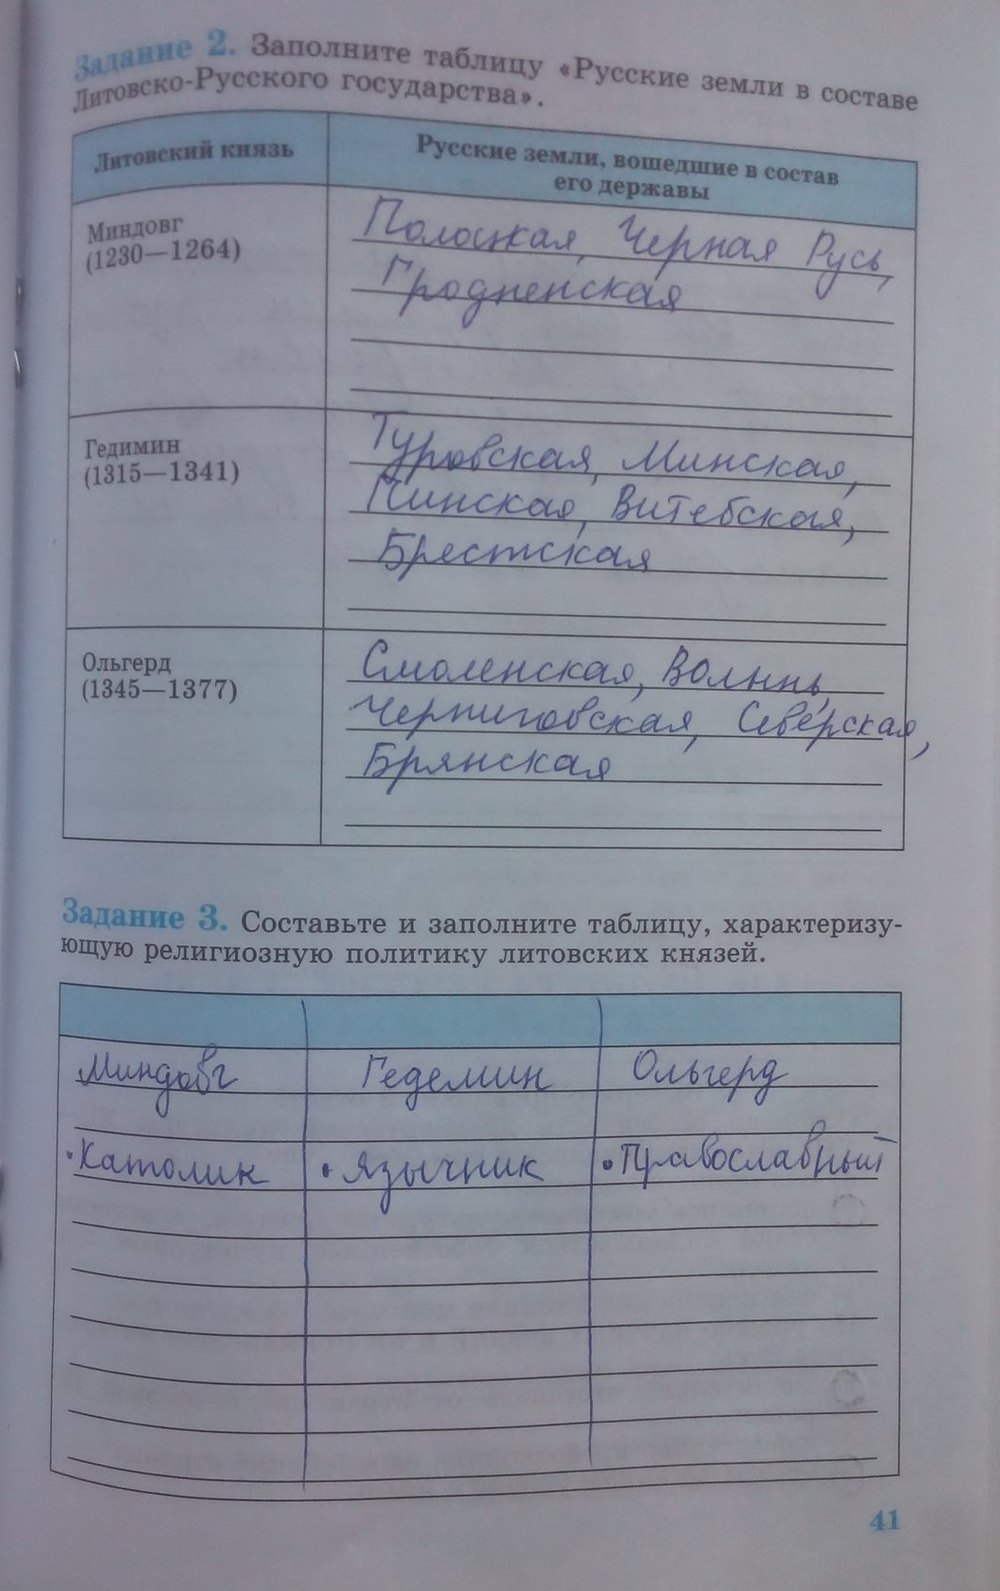 Задание 2. Заполните таблицу «Русские земли в составе
Литовско-Русского государства».
Литовский князь
Русские земли, вошедшие в состав
его державы
Миндовг
(1230—1264)
Полоцкая, Черная Русь,
Гродненская
Гедимин
(1315—1341)
Туровская, Минская,
Пинская, Витебская,
Брестская
Ольгерд
(1345—1377)
Смоленская, Волынь,
Черниговская, Северская,
Брянская
Задание 3. Составьте и заполните таблицу, характеризу-
ющую религиозную политику литовских князей.
Миндовг Гедемин Ольгерд
•Католик • язычник •Православный
41